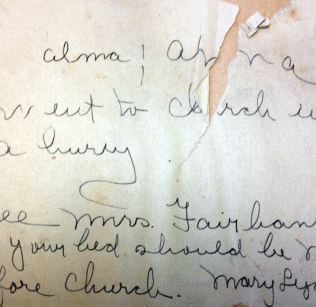 alma ! Anna
went to Church
a hurry
Mrs. Fairban
your bed should be
fore Church. Mary Ly